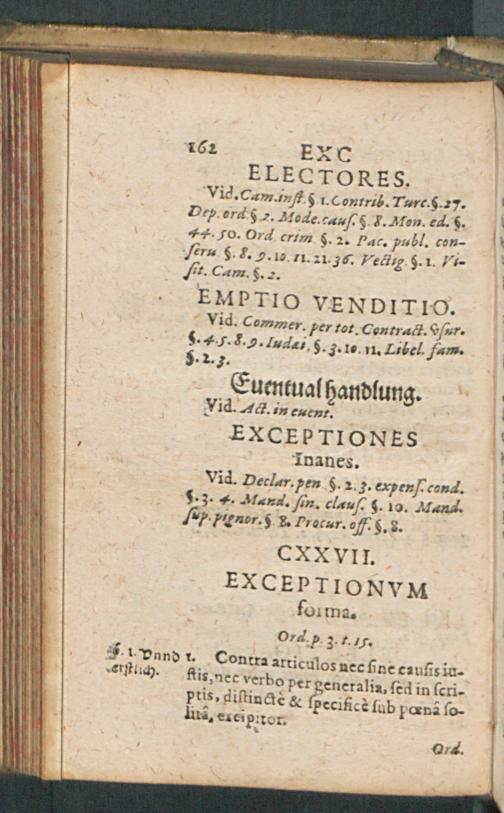 162 EXC
ELECTORES.
Vid. Cam. inst. § 1. Contrib. Turc. §. 27.
Dep. ord § 2. Mode. caus. §. 8. Mon. ed. §.
44. 50. Ord crim §. 2. Pac. publ. con-
seru §. 8. 9. 10. 11. 21. 36. Vectig §. 1. Vi-
sit. Cam. §. 2.
EMPTIO VENDITIO.
Vid. Commer. per tot. Contract. vsur.
§. 4. 5. 8. 9. Iudæi, §. 3. 10. 11. Libel. fam.
§. 2. 3.
Euentual handlung.
Vid. Act. in euent.
EXCEPTIONES
Inanes.
Vid. Declar. pen §. 2. 3. expens. cond.
§. 3. 4. Mand. sin. claus. §. 10. Mand.
sup. pignor. §. 8. Procur. off. §. 8.
CXXVII.
EXCEPTIONVM
forma.
Ord. p. 3. t. 15.
§. 1. Vnnd 1. Contra articulos nec sine causis iu-
erstlich. stis, nec verbo per generalia, sed in scri-
ptis, distinctè & specificè sub pœnâ so-
litâ, excipitor.
Ord.